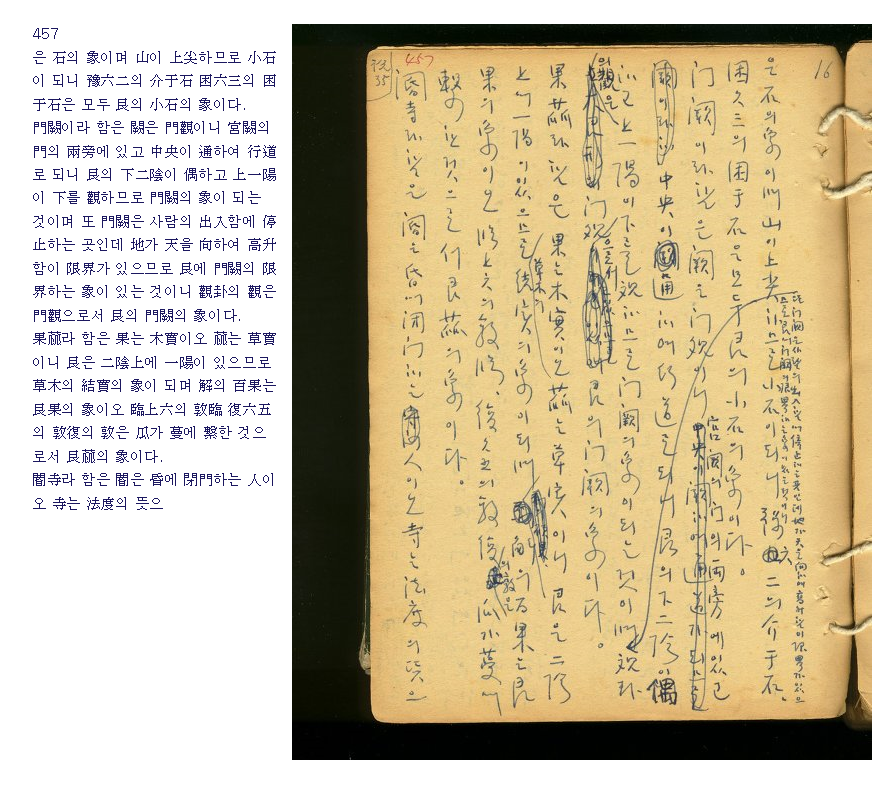 457
은 石의 象이며 山이 上尖하므로 小石
이 되니 豫六二의 介于石 困六三의 困
于石은 모두 艮의 小石의 象이다.
門闕이라 함은 闕은 門觀이니 宮闕의
門의 兩旁에 있고 中央이 通하여 行道
로 되니 艮의 下二陰이 偶하고 上一陽
이 下를 觀하므로 門闕의 象이 되는
것이며 또 門闕은 사람의 出入함에 停
止하는 곳인데 地가 天을 向하여 高升
함이 限界가 있으므로 艮에 門闕의 限
界하는 象이 있는 것이니 觀卦의 觀은
門觀으로서 艮의 門闕의 象이다.
果蓏라 함은 果는 木實이오 蓏는 草實
이니 艮은 二陰上에 一陽이 있으므로
草木의 結實의 象이 되며 解의 百果는
艮果의 象이오 臨上六의 敦臨 復六五
의 敦復의 敦은 瓜가 蔓에 繫한 것으
로서 艮蓏의 象이다.
閽寺라 함은 閽은 昏에 閉門하는 人이
오 寺는 法度의 뜻으
457
16
은 石의 象이며 山이 上尖하므로 小石이 되니 豫六二의 介于石
困六三의 困于石은 모두 艮의 小石의 象이다.
門闕이라 함은 闕은 門觀이니 宮闕의 門의 兩旁에 있고
中央이 通하여 行道로 되니 艮의 下二陰이 偶
하고 上一陽이 下를 觀하므로 門闕의 象이 되는 것이며 觀卦
의 觀은 門觀으로서 艮의 門闕의 象이다.
果蓏라 함은 果는 木實이오 蓏는 草實이니 艮은 二陰
上에 一陽이 있으므로 草木의 結實의 象이 되며 解의 百果는 艮
果의 象이오 臨上六의 敦臨, 復六五의 敦復의 敦은 瓜가 蔓에
繫한 것으로서 艮蓏의 象이다.
閽寺라 함은 閽은 昏에 閉門하는 人이오 寺는 法度의 뜻으